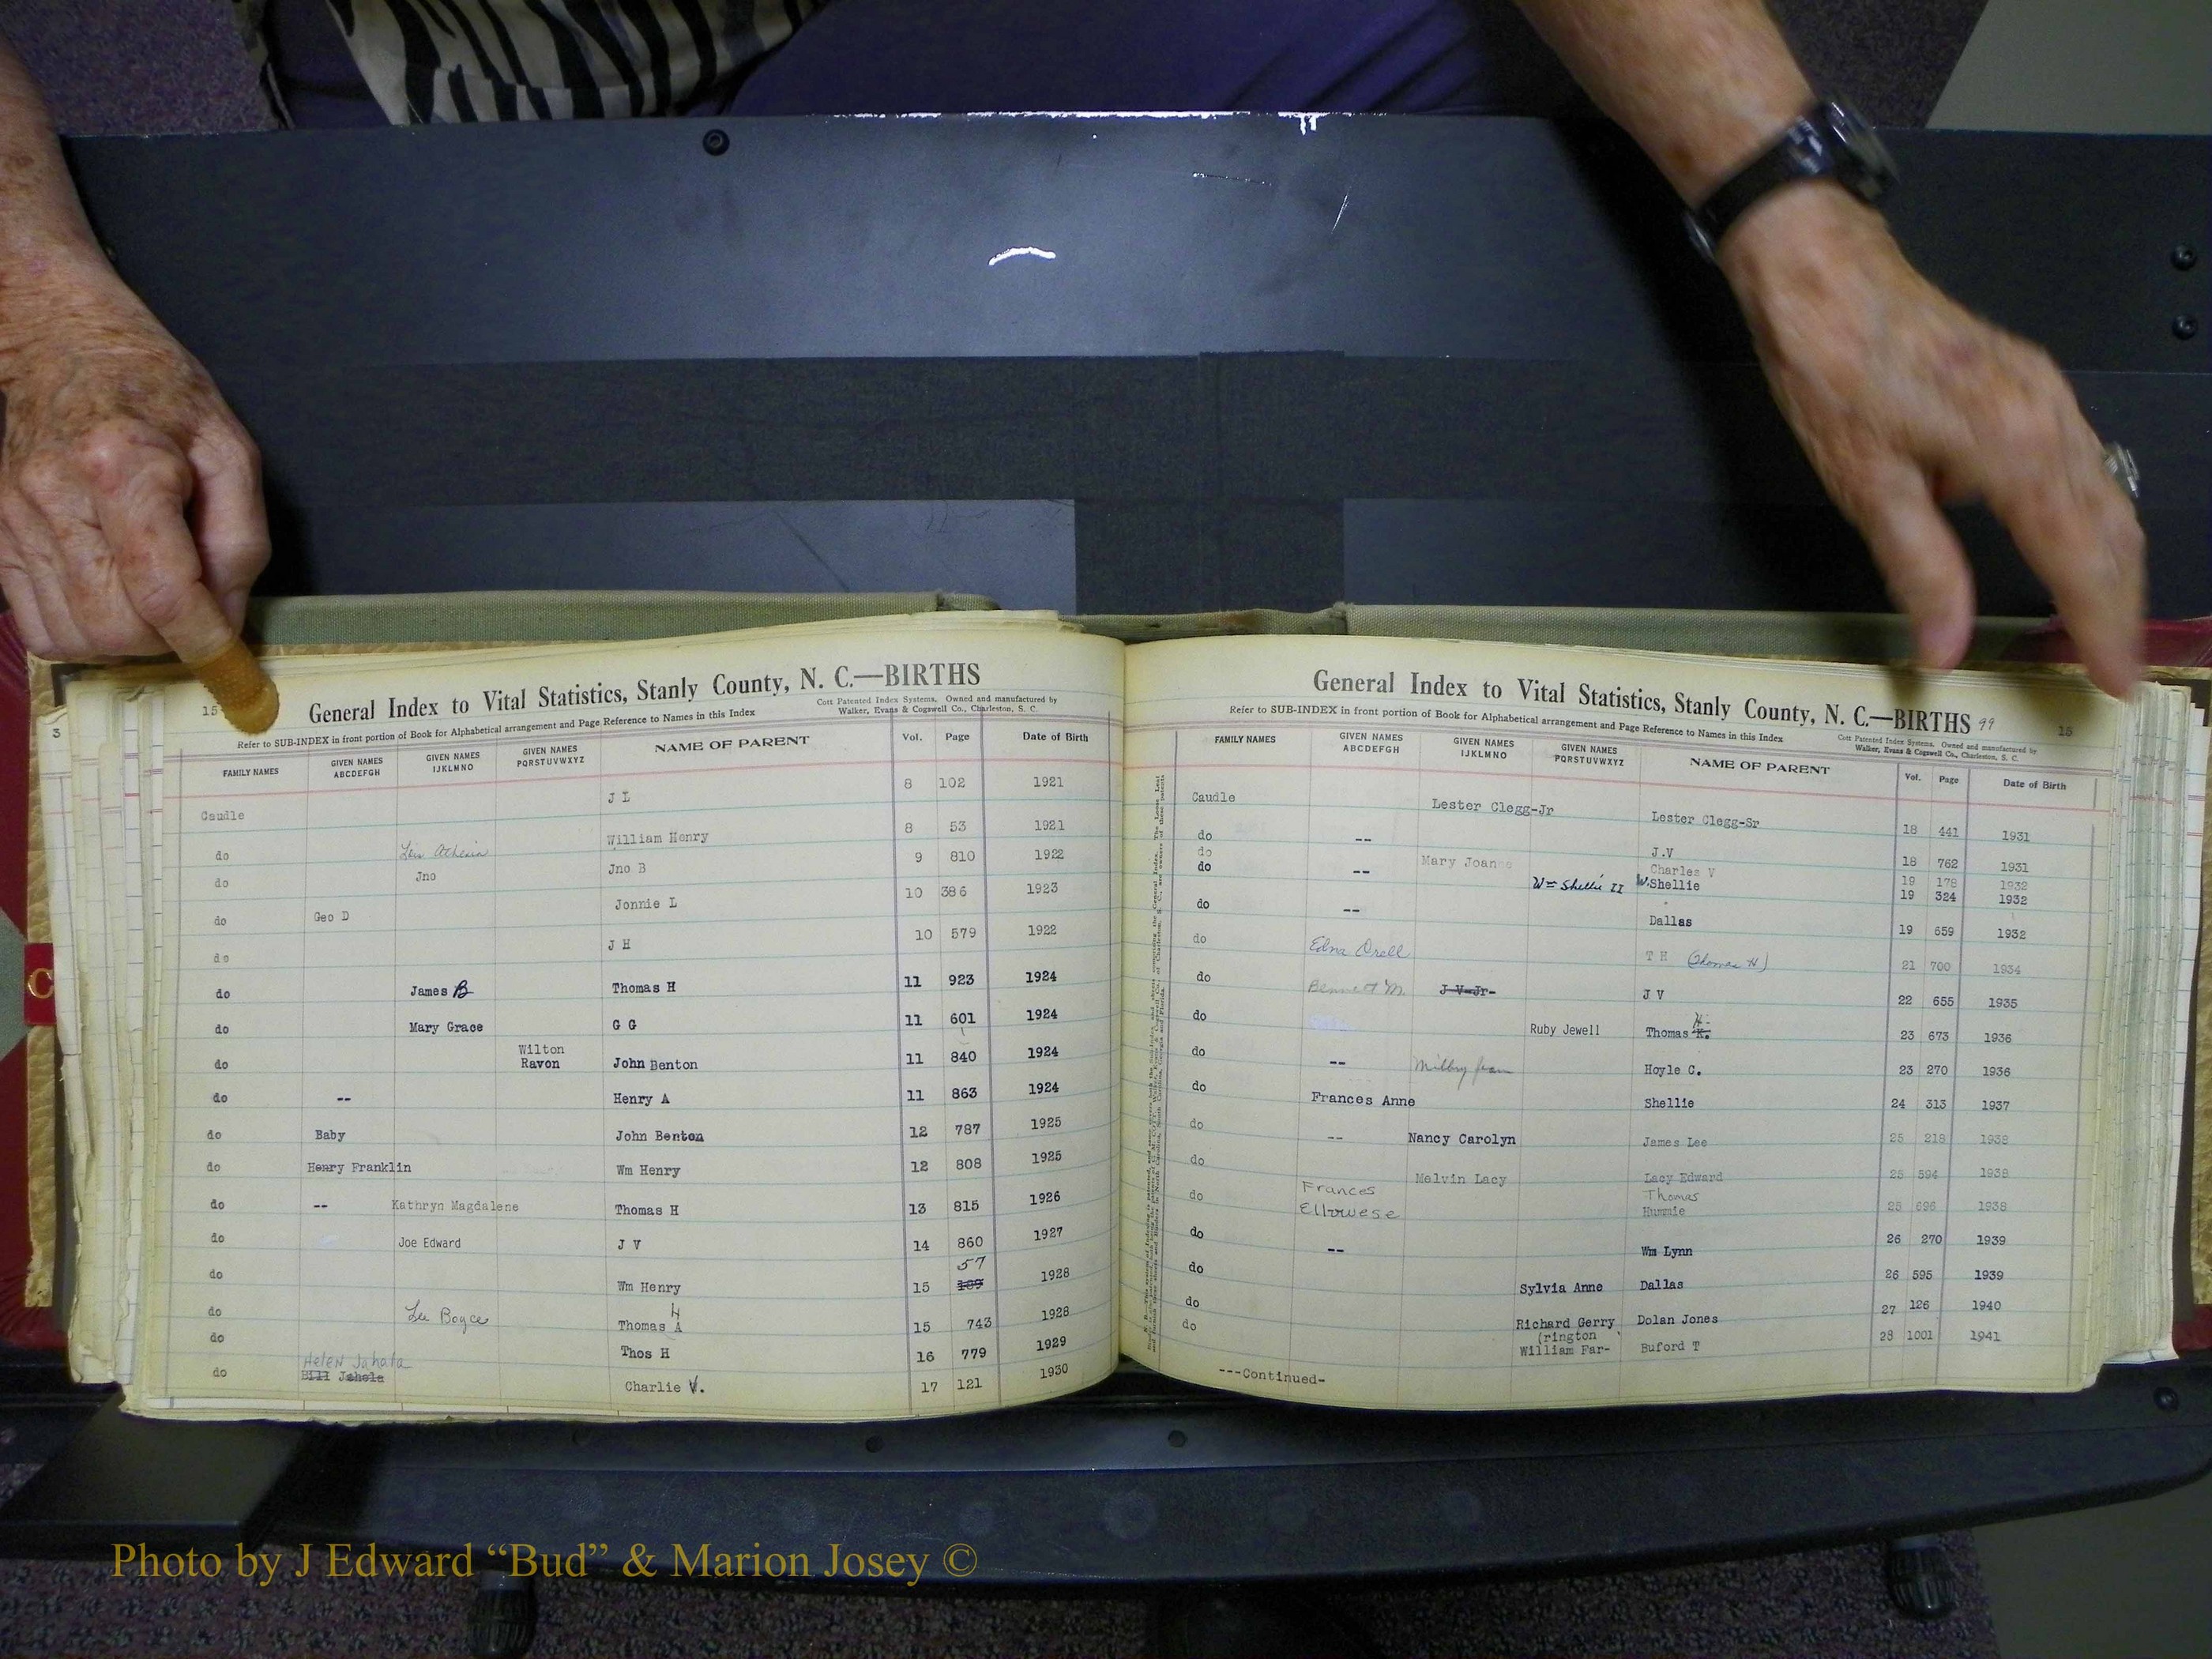 3
15
General Index to Vital Statistics, Stanly County, N. C.—BIRTHS
Refer to SUB-INDEX in front portion of Book for Alphabetical arrangement and Page Reference to Names in this Index
Cott Patented Index Systems, Owned and manufactured by
Walker, Evans & Cogswell Co., Charleston, S. C.
FAMILY NAMES GIVEN NAMES ABCDEFGH GIVEN NAMES IJKLMNO GIVEN NAMES PQRSTUVWXYZ NAME OF PARENT Vol. Page Date of Birth
Caudle J L 8 102 1921
do William Henry 8 53 1921
do Jno Jno B 9 810 1922
do Geo D Jonnie L 10 386 1923
do J H 10 579 1922
do James B Thomas H 11 923 1924
do Mary Grace G G 11 601 1924
do Wilton Ravon John Benton 11 840 1924
do -- Henry A 11 863 1924
do Baby John Benton 12 787 1925
do Henry Franklin Wm Henry 12 808 1925
do -- Kathryn Magdalene Thomas H 13 815 1926
do Joe Edward J V 14 860 1927
do Wm Henry 15 57 189 1928
do Lee Boyce Thomas A H 15 743 1928
do Thos H 16 779 1929
do Helen Jahala
Bill Jahela Charlie V. 17 121 1930
C
General Index to Vital Statistics, Stanly County, N. C.—BIRTHS 99
15
Refer to SUB-INDEX in front portion of Book for Alphabetical arrangement and Page Reference to Names in this Index
Cott Patented Index Systems, Owned and manufactured by
Walker, Evans & Cogswell Co., Charleston, S. C.
FAMILY NAMES GIVEN NAMES ABCDEFGH GIVEN NAMES IJKLMNO GIVEN NAMES PQRSTUVWXYZ NAME OF PARENT Vol. Page Date of Birth
Caudle Lester Clegg-Jr Lester Clegg-Sr 18 441 1931
do -- J.V 18 762 1931
do Mary Joanne Charles V 19 178 1932
do -- Wm Shellie II W.Shellie 19 324 1932
do -- Dallas 19 659 1932
do Edna Orell T H (Thomas H) 21 700 1934
do Bennett M. J V Jr- J V 22 655 1935
do Ruby Jewell Thomas K. H. 23 673 1936
do -- Milbry Jean Hoyle C. 23 270 1936
do Frances Anne Shellie 24 313 1937
do -- Nancy Carolyn James Lee 25 218 1938
do Melvin Lacy Lacy Edward 25 594 1938
do Frances Ellowese Thomas Hummie 25 696 1938
do -- Wm Lynn 26 270 1939
do Sylvia Anne Dallas 26 595 1939
do Richard Gerry Dolan Jones 27 126 1940
do (rington
William Far- Buford T 28 1001 1941
---Continued-
Photo by J Edward “Bud” & Marion Josey ©